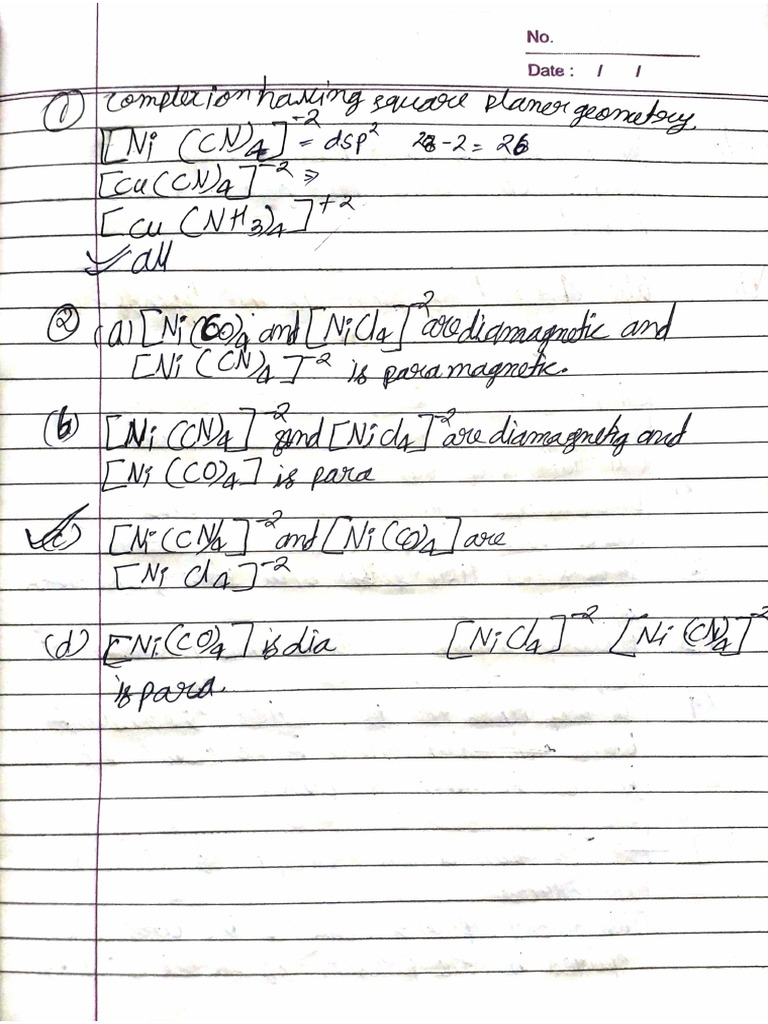 No.
Date : / /
① complex ion having square planer geometry.
[Ni (CN)4]-2 = dsp2 28-2 = 26
[cu(CN)4]-2 ⇒
[cu (NH3)4]+2
✓ all
② (a) [Ni(CO)4 and [NiCl4]-2 are diamagnetic and
[Ni (CN)4]-2 is paramagnetic.
(b) [Ni (CN)4]-2 and [NiCl4]-2 are diamagnetiq and
[Ni (CO)4] is para
✓(c) [Ni(CN)4]-2 and [Ni(CO)4] are
[Ni Cl4]-2
(d) [Ni(CO)4] is dia [NiCl4]-2 [Ni (CN)4]-2
is para.